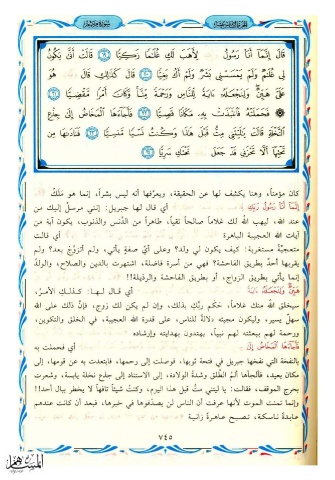 قَالَ إِنَّمَا أَنَا۠ رَسُولُ رَبِّكِ لِأَهَبَ لَكِ غُلَٰمًا زَكِيًّا ١٩ قَالَتْ أَنَّىٰ يَكُونُ
لِى غُلَٰمٌ وَلَمْ يَمْسَسْنِى بَشَرٌ وَلَمْ أَكُ بَغِيًّا ٢٠ قَالَ كَذَٰلِكِ قَالَ رَبُّكِ هُوَ
عَلَىَّ هَيِّنٌ وَلِنَجْعَلَهُۥٓ ءَايَةً لِّلنَّاسِ وَرَحْمَةً مِّنَّا وَكَانَ أَمْرًا مَّقْضِيًّا ٢١
فَحَمَلَتْهُ فَٱنتَبَذَتْ بِهِۦ مَكَانًا قَصِيًّا ٢٢ فَأَجَآءَهَا ٱلْمَخَاضُ إِلَىٰ جِذْعِ
ٱلنَّخْلَةِ قَالَتْ يَٰلَيْتَنِى مِتُّ قَبْلَ هَٰذَا وَكُنتُ نَسْيًا مَّنسِيًّا ٢٣ فَنَادَىٰهَا مِن
تَحْتِهَآ أَلَّا تَحْزَنِى قَدْ جَعَلَ رَبُّكِ تَحْتَكِ سَرِيًّا ٢٤
كان مؤمناً، وهنا يكشف لها عن الحقيقة، ويعرّفها أنه ليس بشراً، إنما هو مَلَكٌ
إِنَّمَا أَنَا رَسُولُ رَبِّكِ أي قال لها جبريل: إنني مرسلٌ إليك من
عند الله، ليهب الله لك غلاماً صالحاً نقياً، طاهراً من الدَّنس والذنوب، يكون آية من
آيات الله العجيبة الباهرة أي قالت
متعجبَّة مستغربة: كيف يكون لي ولد؟ وعلى أيِّ صفةٍ يأتي، ولم أتزوَّج بعد؟ ولم
يقربها أحدٌ بطريق الفاحشة؟ فهي من أسرة فاضلة، اشتهرت بالدين والصلاح، والولد
إنما يأتي بطريق الزواج، أو بطريق الفاحشة والرذيلة!!
أي قال لها: كذلك الأمرُ،
سيخلق الله منك غلاماً، حَكَم ربُّك بذلك، وإن لم يكن لك زوج، فإنَّ ذلك على الله
سهلٌ يسير، وليكون مجيئه دلالةً للناس، على قدرة الله العجيبة، في الخلق والتكوين،
ورحمة لهم ببعثته لهم نبياً، يهتدون بهدايته وإرشاده
فَأَجَاءَهَا الْمَخَاضُ إِلَى أي فحملت به
بالنفخة التي نفخها جبريل في فتحة ثوبها، فوصلت إلى رحمها، فابتعدت به عن قومها، إلى
مكان بعيد، فألجأها ألمُ الطَّلْق وشدةُ الولادة، إلى الاستناد إلى جذع نخلة يابسة، وشعرت
بحرج الموقف، فقالت: يا ليتني متُّ قبل هذا اليوم، وكنتُ شيئاً تافهاً لا يخطر ببال أحد!!
وإنما تمنت الموت لأنها عرفت أن الناس لن يصدّقوها في خبرها، فبعد أن كانت عندهم
عابدةً ناسكة، تصبح عاهرةً زانية
٧٤٥